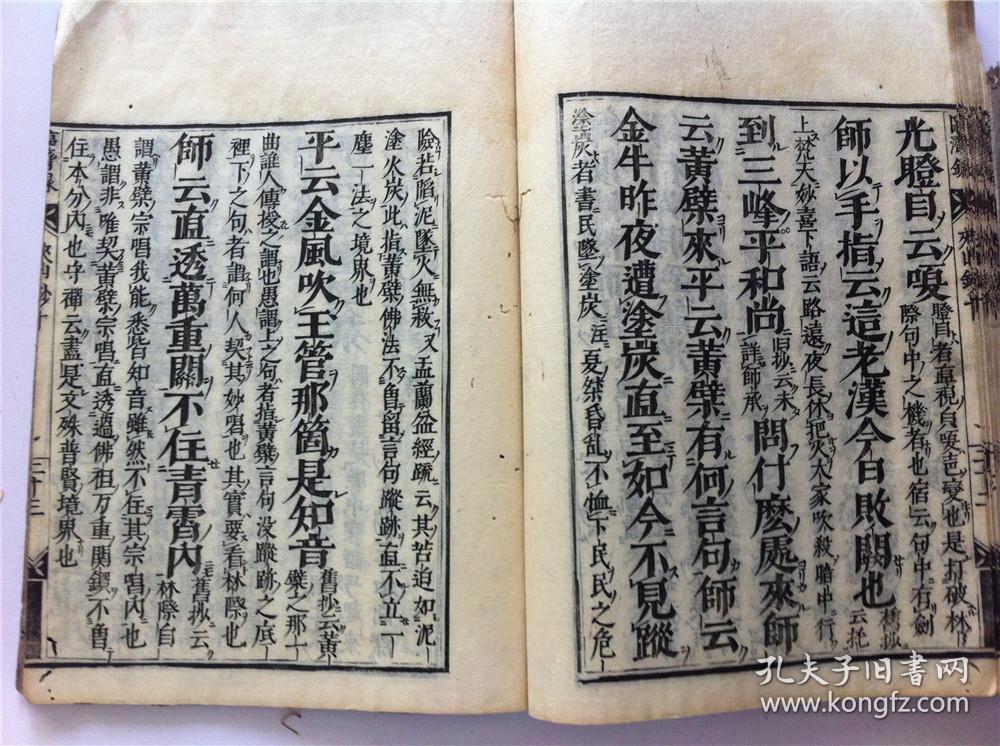 光瞪目云嗄瞪目者直視皃嗄声變也是打破林
際句中之機者也宿云句中有劍
師以手指云這老漢今日敗闕也舊抄云托
上梵天妙喜下語云路遠夜長休把火大家吹殺暗中行
到三峰平和尚旧抄云未詳師承問什麽處來師
云黄檗來平云黄檗有何言句師云
金牛昨夜遭塗炭直至如今不見蹤
塗炭者書民墜塗炭注夏桀昏亂不恤下民民之危
險若陷泥墜火無救又盂蘭盆經疏云其苦迫如泥
塗火炭此指黄檗佛法不曾留言句蹤跡直不立一
塵一法之境界也
平云金風吹玉管那箇是知音舊抄云黄檗之那一
曲誰人傳授之謂也愚謂上之句者指黄檗言句没蹤跡之底
裡下之句者謂何人契其妙唱也其實要看林際也
師云直透萬重關不住青霄内舊抄云林際自
謂黄檗宗唱我能悉皆知音雖然不住其宗唱内也
愚謂非唯契黄檗宗唱直透過佛祖万重関鎖不曾
住本分内也守禪云盡是文殊普賢境界也
孔夫子旧书网
www.kongfz.com